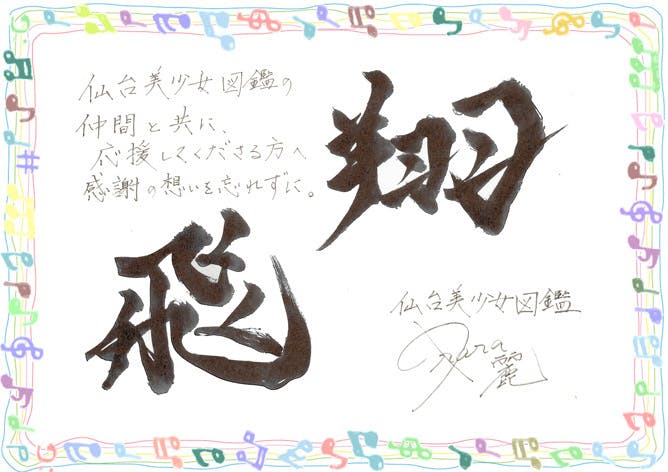 仙台美少女図鑑の
仲間と共に、
応援してくださる方へ
感謝の想いを忘れずに。
飛
翔
仙台美少女図鑑
麗